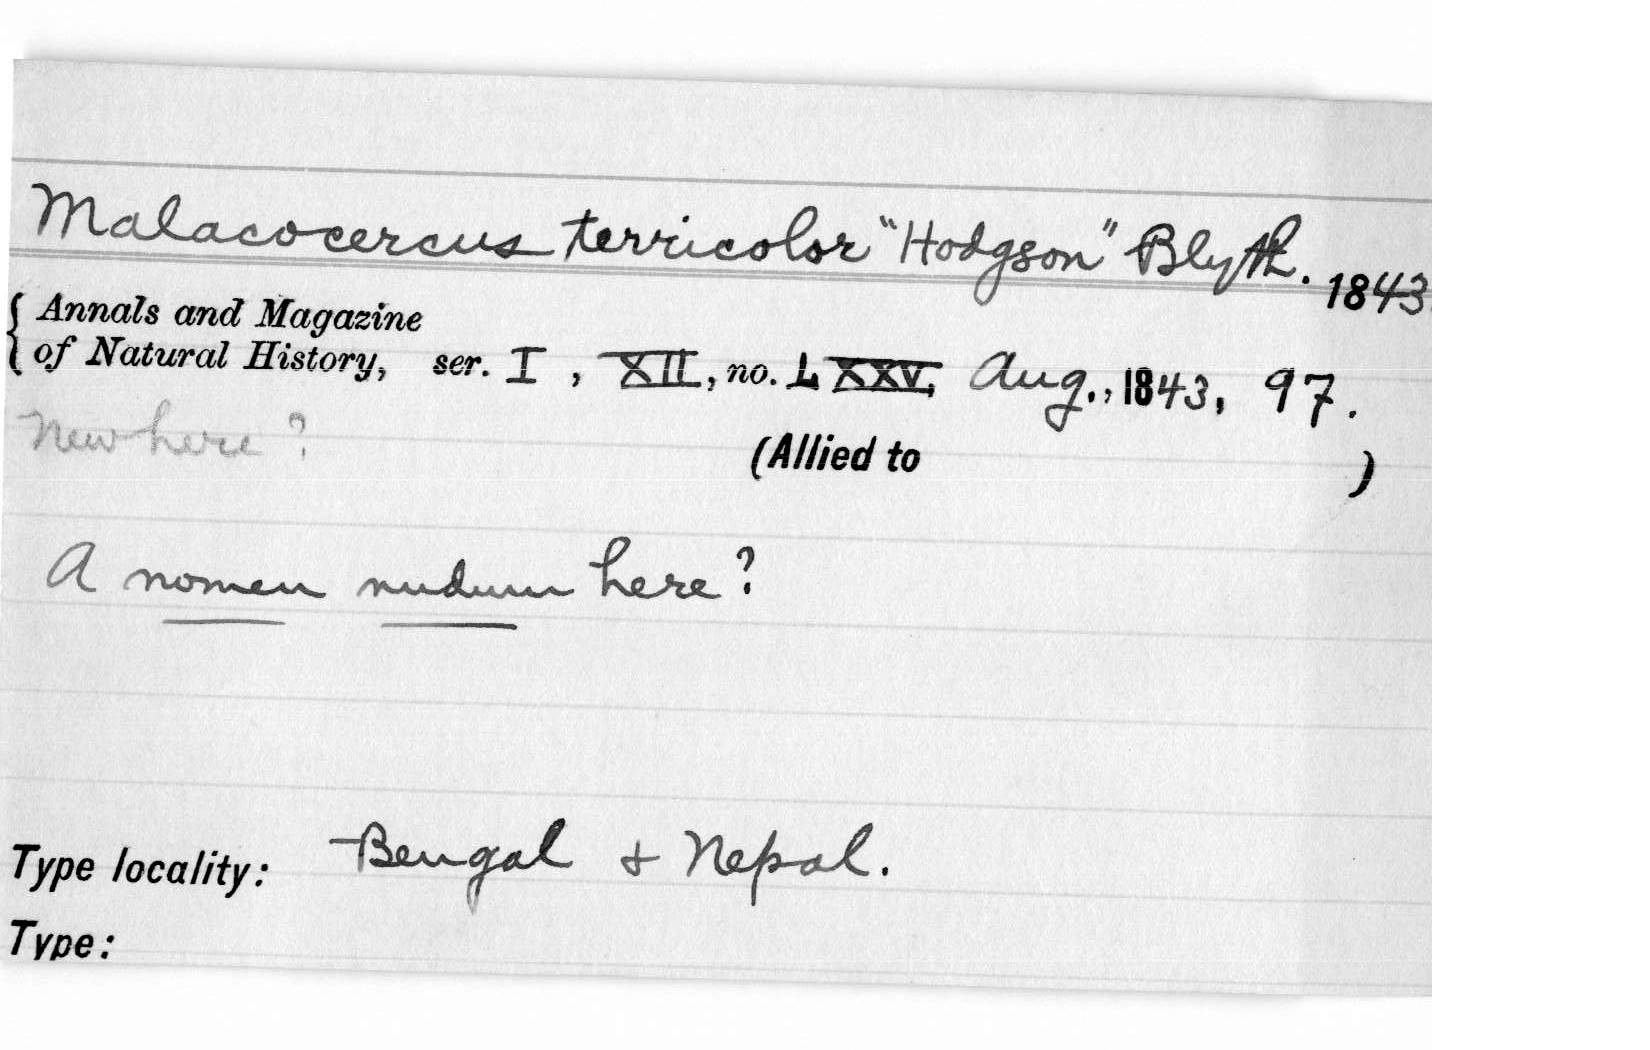 Malacocercus terricolor "Hodgson" Blyth. 1843.
{ Annals and Magazine
of Natural History, ser. I, XII, no. LXXV, Aug., 1843, 97.
New here?
(Allied to )
A nomen nudum here?
Type locality: Bengal & Nepal.
Type: